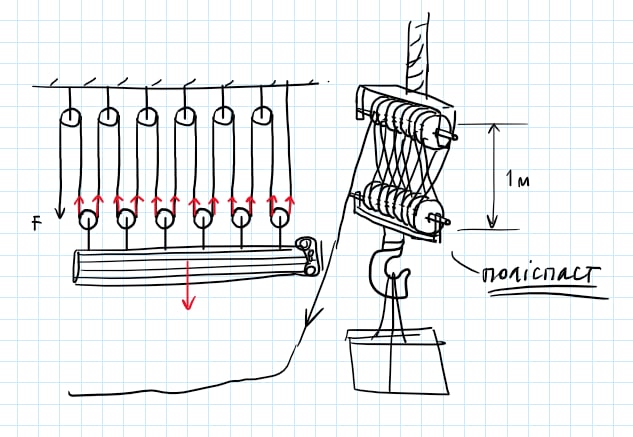 F
1м
поліспаст